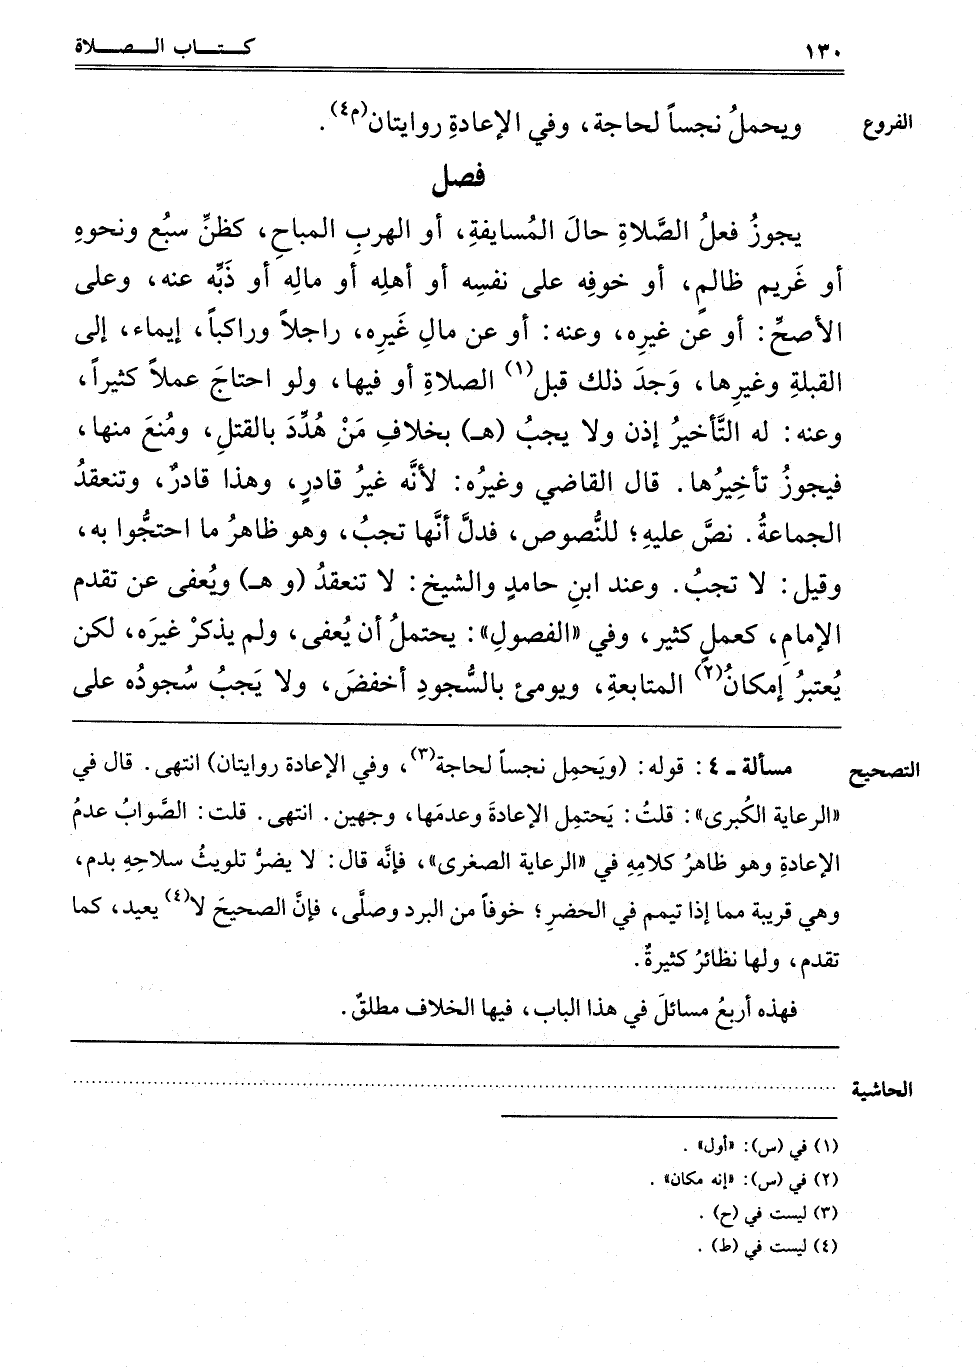 ١٣٠ كـتـاب الـصـلاة
الفروع ويحملُ نجساً لحاجة، وفي الإعادةِ روايتان(م٤).
فصل
يجوزُ فعلُ الصَّلاةِ حالَ المُسايفةِ، أو الهربِ المباحِ، كظنِّ سبُع ونحوهِ
أو غَريم ظالمٍ، أو خوفِه على نفسِه أو أهلِه أو مالِه أو ذَبِّه عنه، وعلى
الأصحِّ: أو عن غيرِه، وعنه: أو عن مالِ غَيرِه، راجلاً وراكباً، إيماء، إلى
القبلةِ وغيرِها، وَجدَ ذلك قبل(١) الصلاةِ أو فيها، ولو احتاجَ عملاً كثيراً،
وعنه: له التَّأخيرُ إذن ولا يجبُ (هـ) بخلافِ مَنْ هُدِّدَ بالقتلِ، ومُنعَ منها،
فيجوزُ تأخِيرُها. قال القاضي وغيرُه: لأنَّه غيرُ قادرٍ، وهذا قادرٌ، وتنعقدُ
الجماعةُ. نصَّ عليهِ؛ للنُّصوص، فدلَّ أنَّها تجبُ، وهو ظاهرُ ما احتجُّوا به،
وقيل: لا تجبُ. وعند ابنِ حامدٍ والشيخ: لا تنعقدُ (و هـ) ويُعفى عن تقدم
الإمامِ، كعملٍ كثير، وفي «الفصولِ»: يحتملُ أن يُعفى، ولم يذكرْ غيرَه، لكن
يُعتبرُ إمكانُ(٢) المتابعةِ، ويومئ بالسُّجودِ أخفضَ، ولا يَجبُ سُجودُه على
التصحيح مسألة ـ ٤: قوله: (ويَحمِل نجساً لحاجة(٣)، وفي الإعادة روايتان) انتهى. قال في
«الرعاية الكُبرى»: قلتُ: يَحتمِل الإعادةَ وعدمَها، وجهين. انتهى. قلت: الصَّوابُ عدمُ
الإعادةِ وهو ظاهرُ كلامِهِ في «الرعاية الصغرى»، فإنَّه قال: لا يضرُّ تلويثُ سلاحِهِ بدم،
وهي قريبة مما إذا تيمم في الحضرِ؛ خوفاً من البرد وصلَّى، فإنَّ الصحيحَ لا(٤) يعيد، كما
تقدم، ولها نظائرُ كثيرةٌ.
فهذه أربعُ مسائلَ في هذا الباب، فيها الخلاف مطلقٌ.
الحاشية ......................................................................
(١) في (س): «أول».
(٢) في (س): «إنه مكان».
(٣) ليست في (ح).
(٤) ليست في (ط).